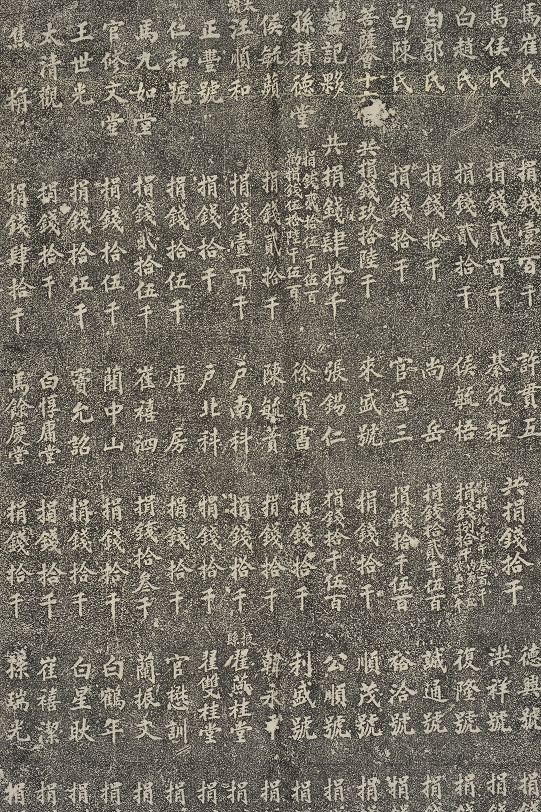 馬崔氏 捐錢壹百千 許貫五 德興號
馬侯氏 捐錢貳百千 綦從矩 共捐錢拾千 洪祥號 捐
白趙氏 捐錢貳拾千 侯毓梧 捐錢 拾千 復隆號 捐
白郭氏 捐錢拾千 尚岳 捐錢拾貳千伍百 誠通號 捐
白陳氏 捐錢拾千 官宣三 捐錢拾千伍百 裕洽號 捐
菩薩會十 共捐錢玖拾陸千 來盛號 捐錢拾千 順茂號 捐
豐記夥 共捐錢肆拾千 張錫仁 捐錢拾千伍百 公順號 捐
孫積德堂 捐錢貳拾伍千伍百 捐錢伍拾陸千伍百 徐寶書 捐錢拾千 利盛號 捐
侯毓蘋 捐錢貳拾千 陳毓貴 捐錢拾千 韓永千 捐
汪順和 捐錢壹百千 戶南科 捐錢拾千 崔燕桂堂 捐
正豐號 捐錢拾千 戶北科 捐錢拾千 崔雙桂堂 捐
仁和號 捐錢拾伍千 庫房 捐錢拾千 官懋訓 捐
馬九如堂 捐錢貳拾伍千 崔禧泗 捐錢拾叁千 藺振文 捐
官修文堂 捐錢拾伍千 藺中山 捐錢拾千 白鶴年 捐
王世光 捐錢拾伍千 竇允詔 捐錢拾千 白星耿 捐
太清觀 捐錢拾千 白惇庸堂 捐錢拾千 崔禧潔 捐
焦梅 捐錢肆拾千 馬餘慶堂 捐錢拾千 孫瑞光 捐